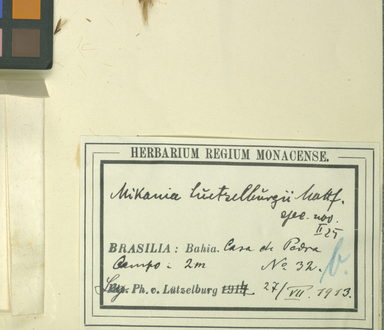 HERBARIUM REGIUM MONACENSE.
Mikania Luetzelburgii Mattf.
spec. nov.
II 25
BRASILIA: Bahia. Casa de Pedra
Campo: 2m No 32. b.
Leg. Ph. v. Lützelburg 1914 27/VII. 1913.